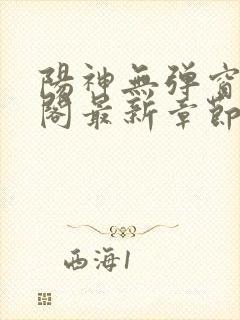 陽神無彈窗
閣最新章節
西海1